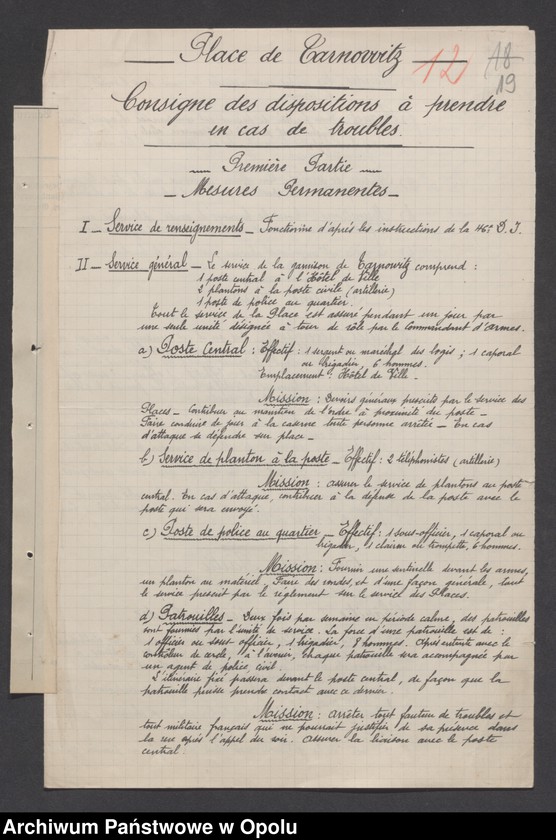 Place de Tarnowitz
12
18
19
Consigne des dispositions à prendre
en cas de troubles.
Première Partie
Mesures Permanentes
I _ Service de renseignements _ Fonctionne d'après les instructions de la 46e D. I.
II _ Service général _ Le service de la garnison de Tarnowitz comprend :
1 poste central à l'Hôtel de Ville
2 plantons à la poste civile (artillerie)
1 poste de police au quartier.
Tout le service de la Place est assuré pendant un jour par
une seule unité désignée à tour de rôle par le Commandant d'Armes.
a) Poste Central : Effectif : 1 sergent ou maréchal des logis ; 1 caporal
ou brigadier, 6 hommes.
Emplacement : Hôtel de Ville _
Mission : Devoirs généraux prescrits par le service des
Places _ Contribuer au maintien de l'ordre à proximité du poste _
Faire conduire de jour à la caserne toute personne arrêtée _ En cas
d'attaque se défendre sur place _
b) Service de planton à la poste _ Effectif : 2 téléphonistes (artillerie)
Mission : assurer le service de plantons au poste
central. En cas d'attaque, contribuer à la défense de la poste avec le
poste qui sera envoyé.
c) Poste de police au quartier _ Effectif : 1 sous-officier, 1 caporal ou
brigadier, 1 clairon ou trompette, 6 hommes.
Mission : Fournir une sentinelle devant les armes,
un planton au matériel, Faire des rondes, et d'une façon générale, tout
le service prescrit par le règlement sur le service des Places.
d) Patrouilles _ Deux fois par semaine en période calme, des patrouilles
sont fournies par l'unité de service. La force d'une patrouille est de :
1 officier ou sous officier, 1 brigadier, 8 hommes. Après entente avec le
contrôleur de cercle, à l'avenir, chaque patrouille sera accompagnée par
un agent de police civil.
L'itinéraire fixé passera devant le poste central, de façon que la
patrouille puisse prendre contact avec ce dernier.
Mission : arrêter tout fauteur de troubles et
tout militaire français qui ne pourrait justifier de sa présence dans
la rue après l'appel du soir. Assurer la liaison avec le poste
central.
Archiwum Państwowe w Opolu